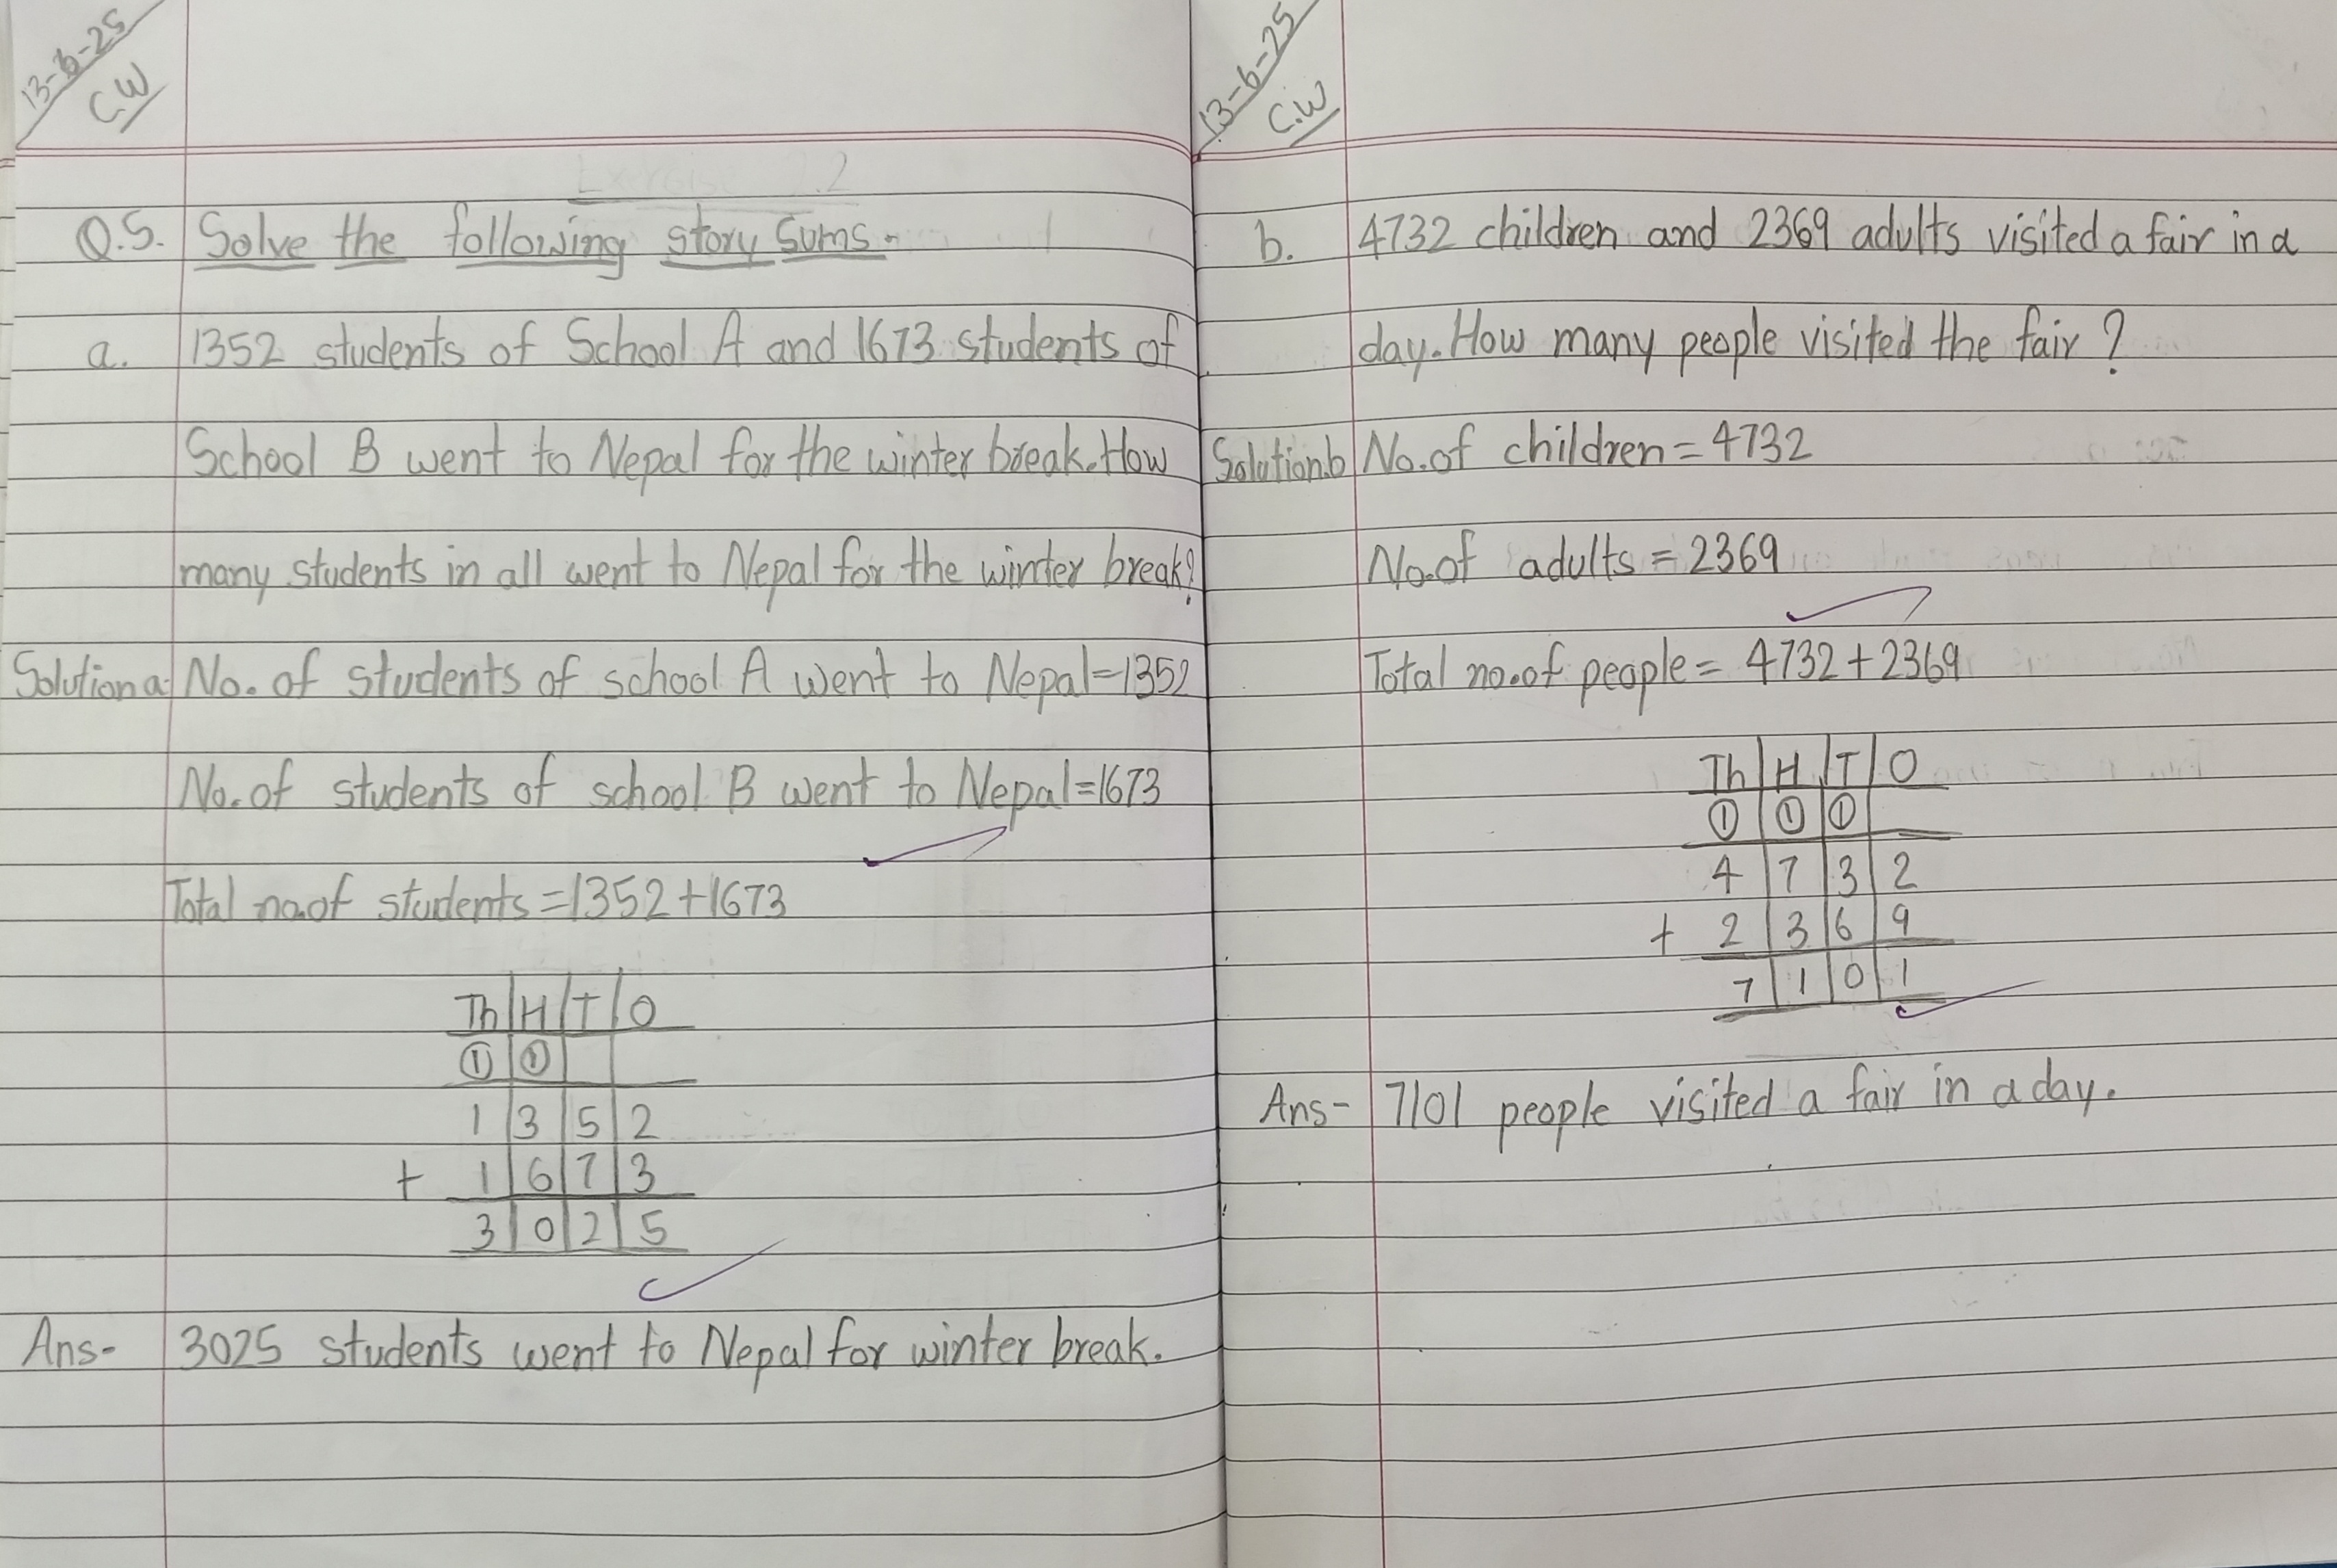 13-6-25
C.W
Exercise 2.2
Q.5. Solve the following story sums-
a. 1352 students of School A and 1673 students of
School B went to Nepal for the winter break. How
many students in all went to Nepal for the winter break?
Solution a. No. of students of school A went to Nepal=1352
No. of students of school B went to Nepal=1673
Total no.of students =1352+1673
Th H T O
1 1
1 3 5 2
+ 1 6 7 3
3 0 2 5
Ans- 3025 students went to Nepal for winter break.
13-6-25
C.W
b. 4732 children and 2369 adults visited a fair in a
day. How many people visited the fair ?
Solution.b No. of children = 4732
No.of adults = 2369
Total no.of people = 4732+2369
Th H T O
1 1 1
4 7 3 2
+ 2 3 6 9
7 1 0 1
Ans- 7101 people visited a fair in a day.